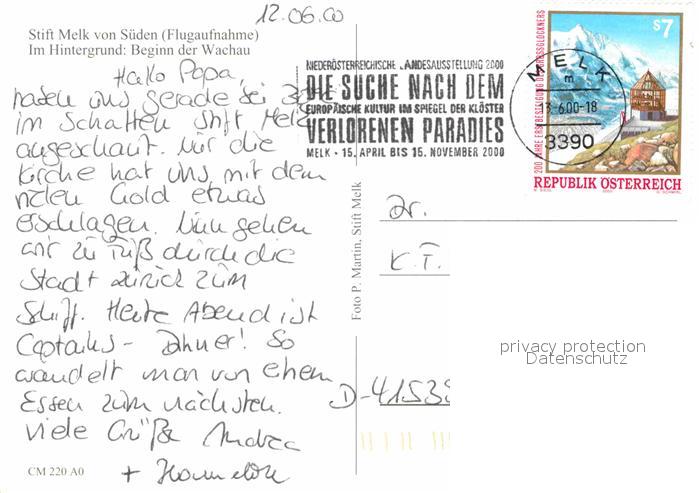 12.06.00
Stift Melk von Süden (Flugaufnahme)
Im Hintergrund: Beginn der Wachau
Hallo Papa,
haben uns gerade bei
im Schatten Stift Melk
angeschaut. Nur die
Kirche hat uns mit dem
vielen Gold etwas
erschlagen. Nun gehen
wir zu Fuß durch die
Stadt zurück zum
Schiff. Heute Abend ist
Captains-Dinner! So
wandelt man von einem
Essen zum nächsten.
Viele Grüße Andrea
+
CM 220 A0
Foto P. Martin, Stift Melk
NIEDERÖSTERREICHISCHE LANDESAUSSTELLUNG 2000
DIE SUCHE NACH DEM
EUROPÄISCHE KULTUR IM SPIEGEL DER KLÖSTER
VERLORENEN PARADIES
MELK - 15. APRIL BIS 15. NOVEMBER 2000
MELK
m
13.6.00-18
3390
S7
200 JAHRE ERSTBESTEIGUNG DES GROSSGLOCKNERS
REPUBLIK ÖSTERREICH
Dr.
K.T.
D-41539
privacy protection
Datenschutz